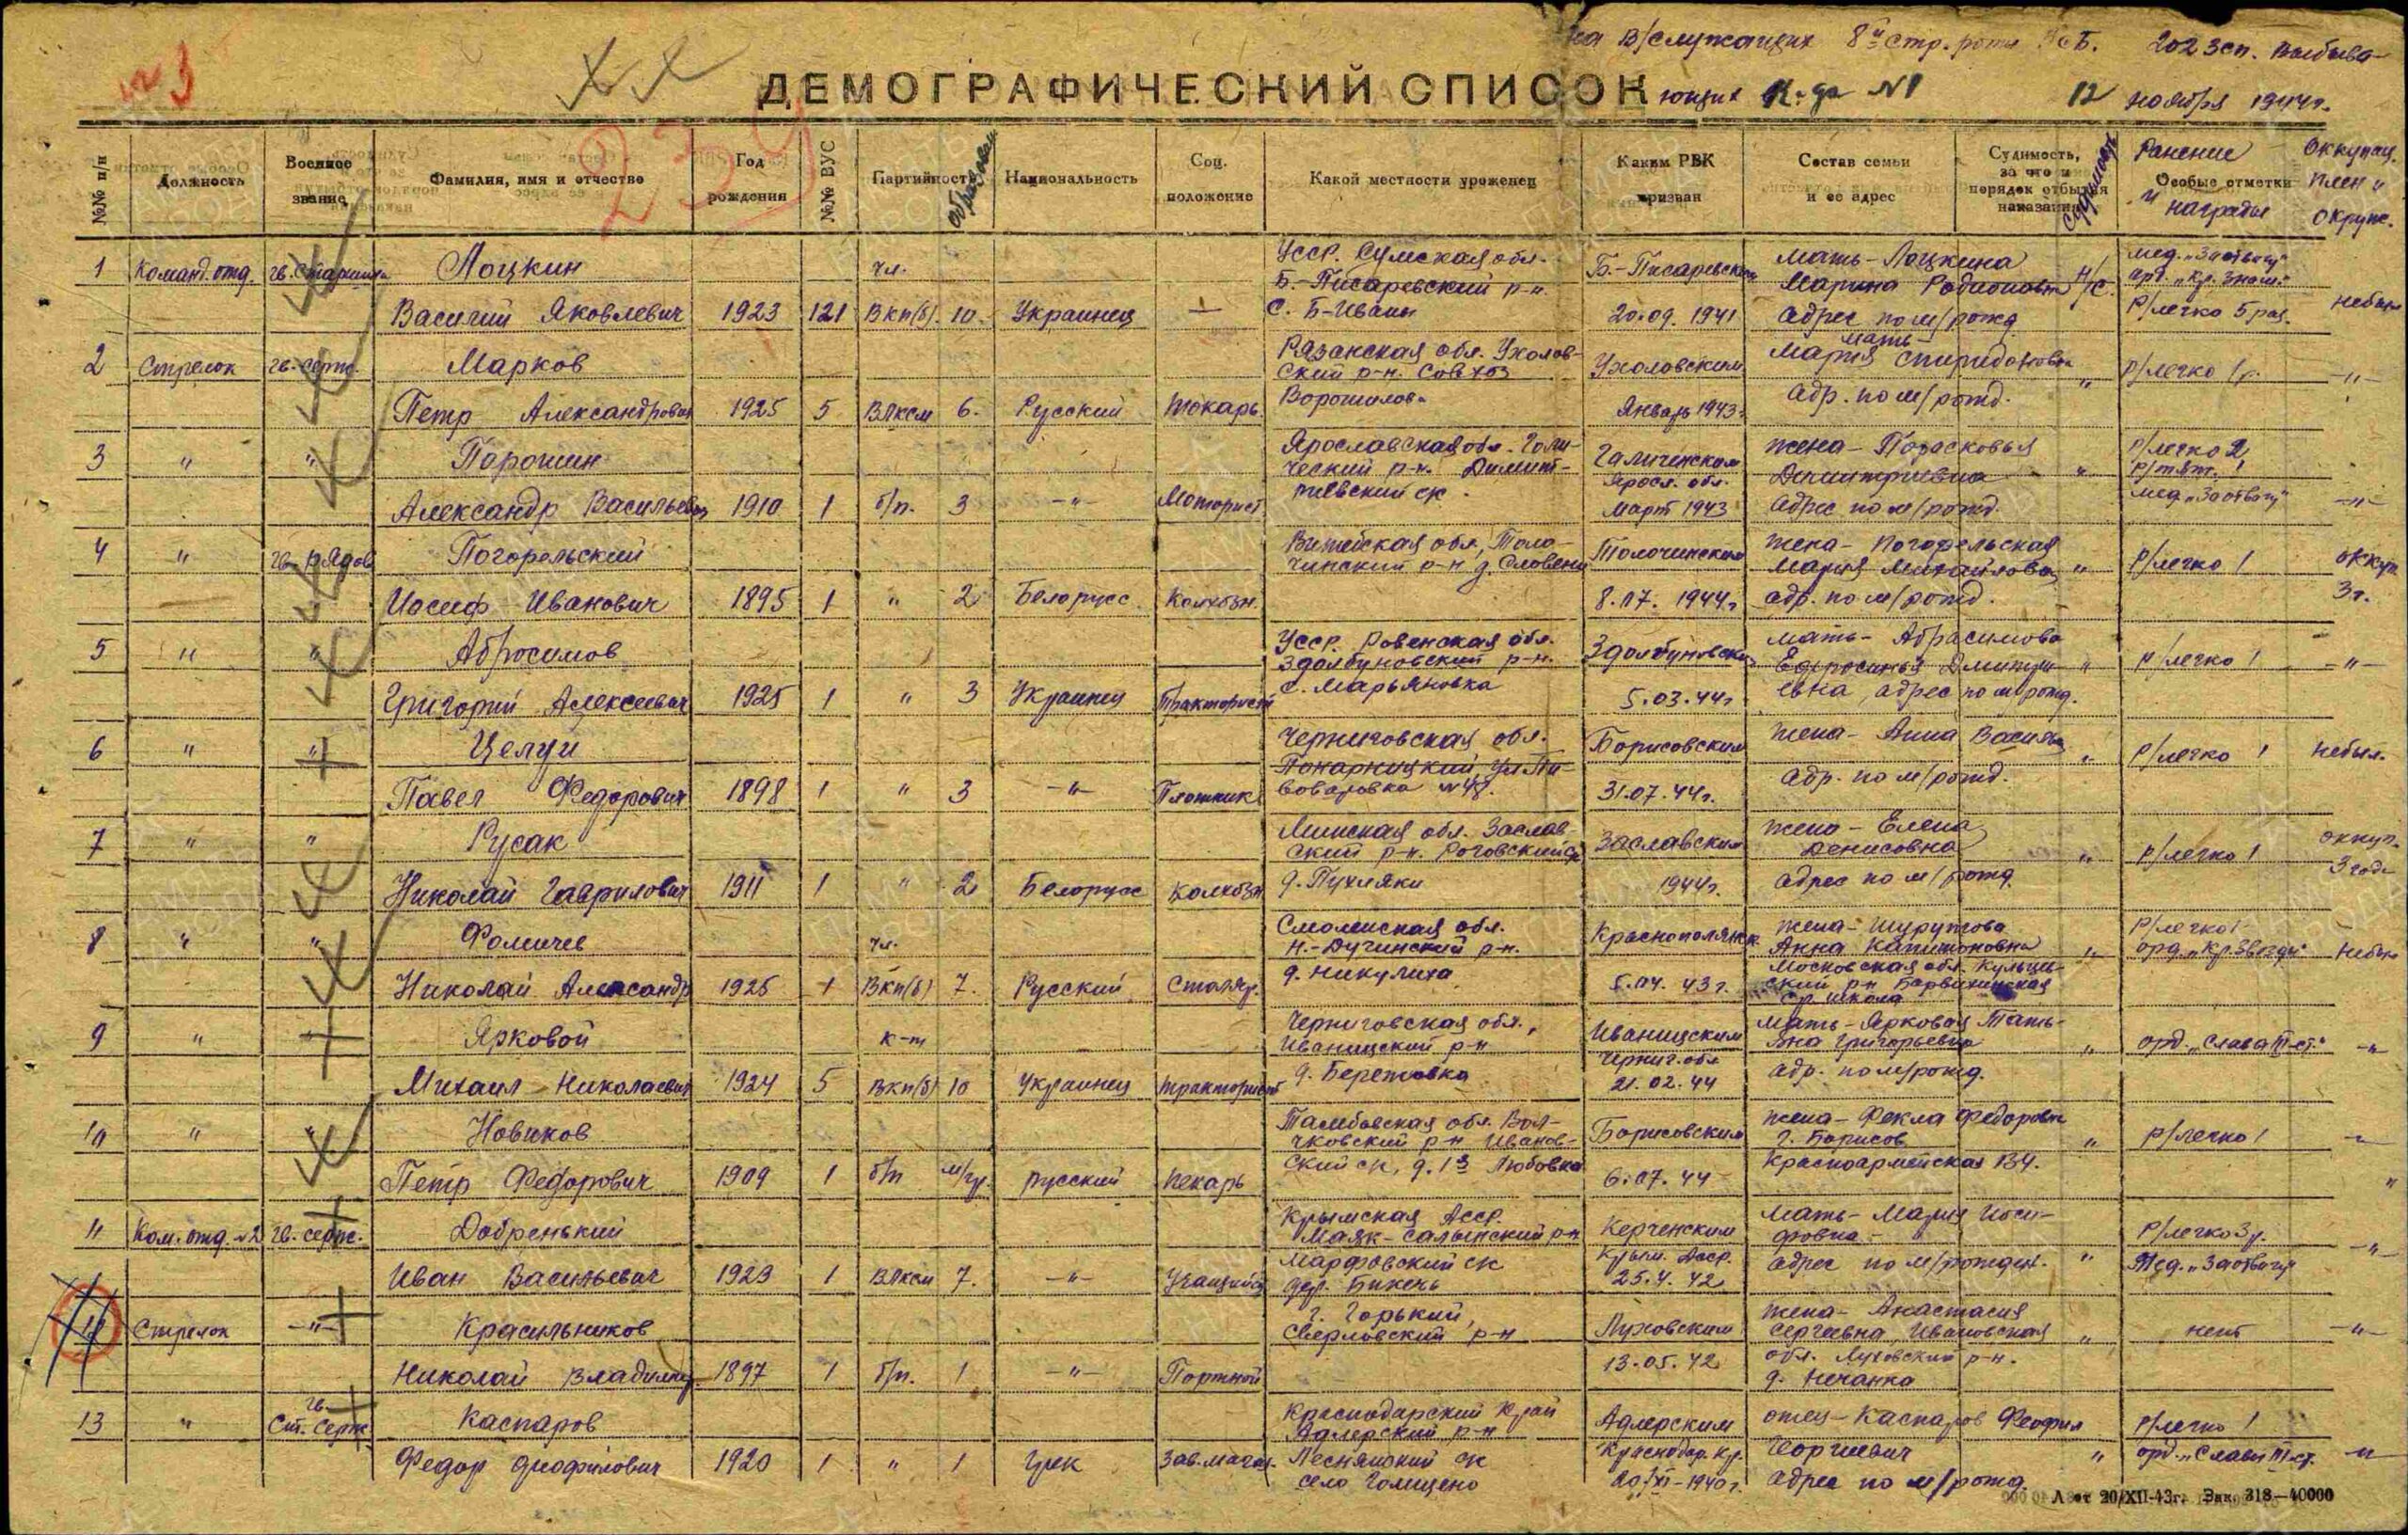 на в/служащих 8й стр. роты 202 зсп. выбыва-
№3
ДЕМОГРАФИЧЕСКИЙ СПИСОК ющих к-да №1 12 ноября 1944г.
239
№№ п/п Должность Военное звание Фамилия, имя и отчество Год рождения №№ ВУС Партийность Образован Национальность Соц. положение Какой местности уроженец Каким РВК призван Состав семьи и ее адрес Судимость, за что и порядок отбытия наказания Судимость Ранение Особые отметки и награды Оккупац. плен и окруж.
1 Команд. отд. гв. старшина Лоцкин чл. УССР. Сумская обл. Б.-Писаревским мать - Лоцкина н/с. мед. "За отвагу"
Б.-Писаревский р-н Марина Родионовна орд. "Кр. Знам."
Василий Яковлевич 1923 121 ВКП(б). 10. Украинец — с. Б-Иваны 20.09.1941 адрес по м/рожд Р/легко 5 раз. небыл
2 Стрелок гв. серж. Марков Рязанская обл. Ухолов- Ухоловским мать
ский р-н. Совхоз Мария Спиридоновна " р/легко 1 р. -"-
Петр Александрович 1925 5 ВЛКСМ 6. Русский Токарь. Ворошилова Январь 1943г. адр. по м/рожд.
3 " " Порошин Ярославская обл. Гали- Галиченским жена - Порасковья р/легко 2
ческий р-н. Димит- Яросл. обл. Димитриевна " р/тяж. 1
Александр Васильевич 1910 1 б/п. 3 -"- Моторист риевский с/с. март 1943 адрес по м/рожд. мед. "За отвагу" -"-
4 " гв. рядов Погорельский Витебская обл, Толо- Толочинским жена - Погорельская
чинский р-н д. Словени Мария Михайловна " р/легко 1 оккуп.
Иосиф Иванович 1895 1 " 2 Белорусс Колхозн. 8.07.1944г адр. по м/рожд. 3г.
5 " " Абросимов УССР. Ровенская обл. Здолбуновским мать - Абрасимова
Здолбуновский р-н. Ефросинья Дмитри- " р/легко 1 -"-
Григорий Алексеевич 1925 1 " 3 Украинец Тракторист с. Марьяновка 5.03.44г евна, адрес по м/рожд.
6 " " Целуи Черниговская обл. Борисовским жена - Анна Василь " р/легко 1 небыл.
Павел Федорович 1898 1 " 3 -"- Плотник воваровка №47. 31.07.44г. адр. по м/рожд.
7 " " Русак Минская обл. Заслав- Заславским жена - Елена
ский р-н. Роговский с/с Денисовна " р/легко 1 оккуп.
Николай Гаврилович 1911 1 " 2 Белорусс Колхозн д. Пухляки 1944г. адрес по м/рожд. 3 года
8 " " Фомичев чл. Смоленская обл. Краснополянск. жена - Шурупова р/легко 1
Н.-Дугинский р-н. Анна Капитоновна " орд. "Кр. Звезды" небыл
Николай Александр 1925 1 ВКП(б) 7. Русский Столяр. д. Никулиха 5.04.43г. Московская обл.
ский р-н Барвихинская
ср. школа
9 " " Ярковой к-т Черниговская обл., Иваницским мать - Ярковая Тать-
Иваницский р-н Черниг. обл яна Григорьевна " орд. "Слава III ст." -"-
Михаил Николаевич 1924 5 ВКП(б) 10 Украинец тракторист д. Бережовка 21.02.44 адр. по м/рожд.
10 " " Новиков Тамбовская обл. Вол- Борисовским жена - Фекла Федоровн
чковский р-н Иванов- г. Борисов " р/легко 1 -"-
Петр Федорович 1909 1 б/п м/гр. русский пекарь ский с/с, д. 1я Любовка 6.07.44 Красноармейская 134. "
11 Ком. отд. №2 гв. серж. Добренький Крымская АССР. Керченским мать - Мария Иоси-
Маяк-Салынский р-н Крым. АССР. фовна - Р/легко 3 р. -"-
Иван Васильевич 1923 1 ВЛКСМ 7. -"- Учащийся Марфовский с/с 25.4.42 адрес по м/рожден. " Мед. "За отвагу"
дер. Бикечь
12 Стрелок -"- Красильников г. Горький, Луховским жена - Анастасия
Свердловский р-н Сергеевна, Ивановская " нет -"-
Николай Владимир. 1897 1 б/п. 1 -"- Портной 13.05.42 обл. Луховский р-н.
д. Нечанка
13 " гв. Ст. серж Каспаров Краснодарский край Адлерским отец - Каспаров Феофил р/легко 1
Адлерский р-н Краснодар. кр. Георгиевич " орд. "Слава III ст. -"-
Федор Феофилович 1920 1 " 1 грек Зав. магаз. Леснянский с/с 20/XI-1940г. адрес по м/рожд.
село Голицено
Л от 20/XII-43г. Зак. 318—40000